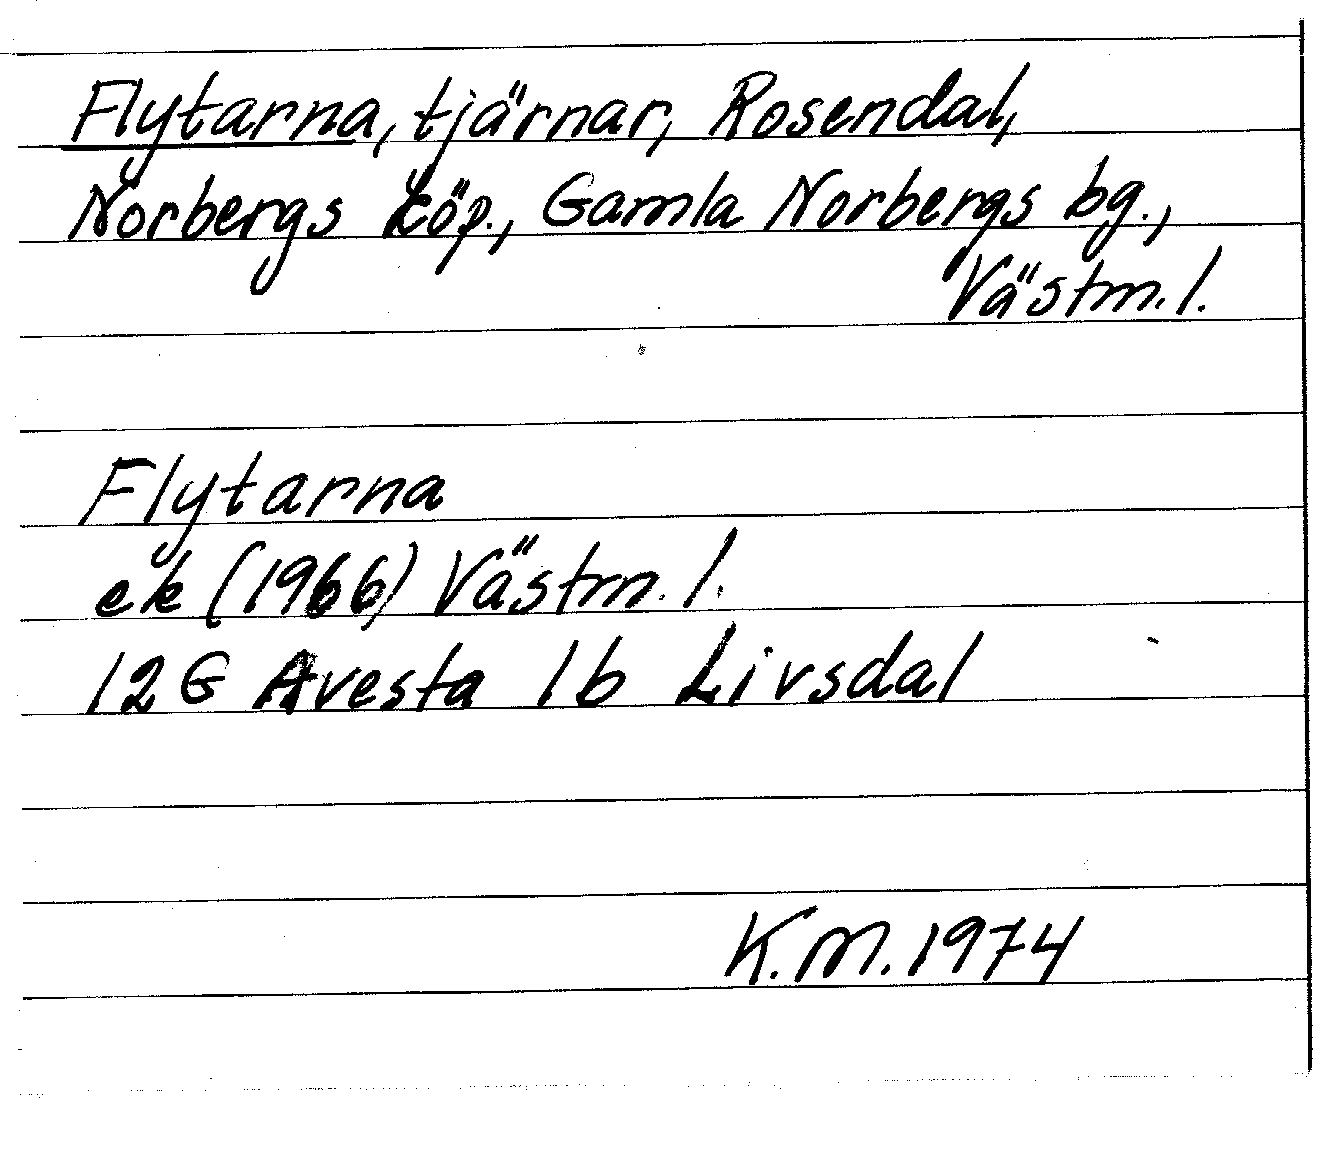 Flytarna, tjärnar, Rosendal,
Norbergs köp., Gamla Norbergs bg.,
Västm. l.
Flytarna
ek (1966) Västm. l.
12 G Avesta 1b Livsdal
K.M. 1974